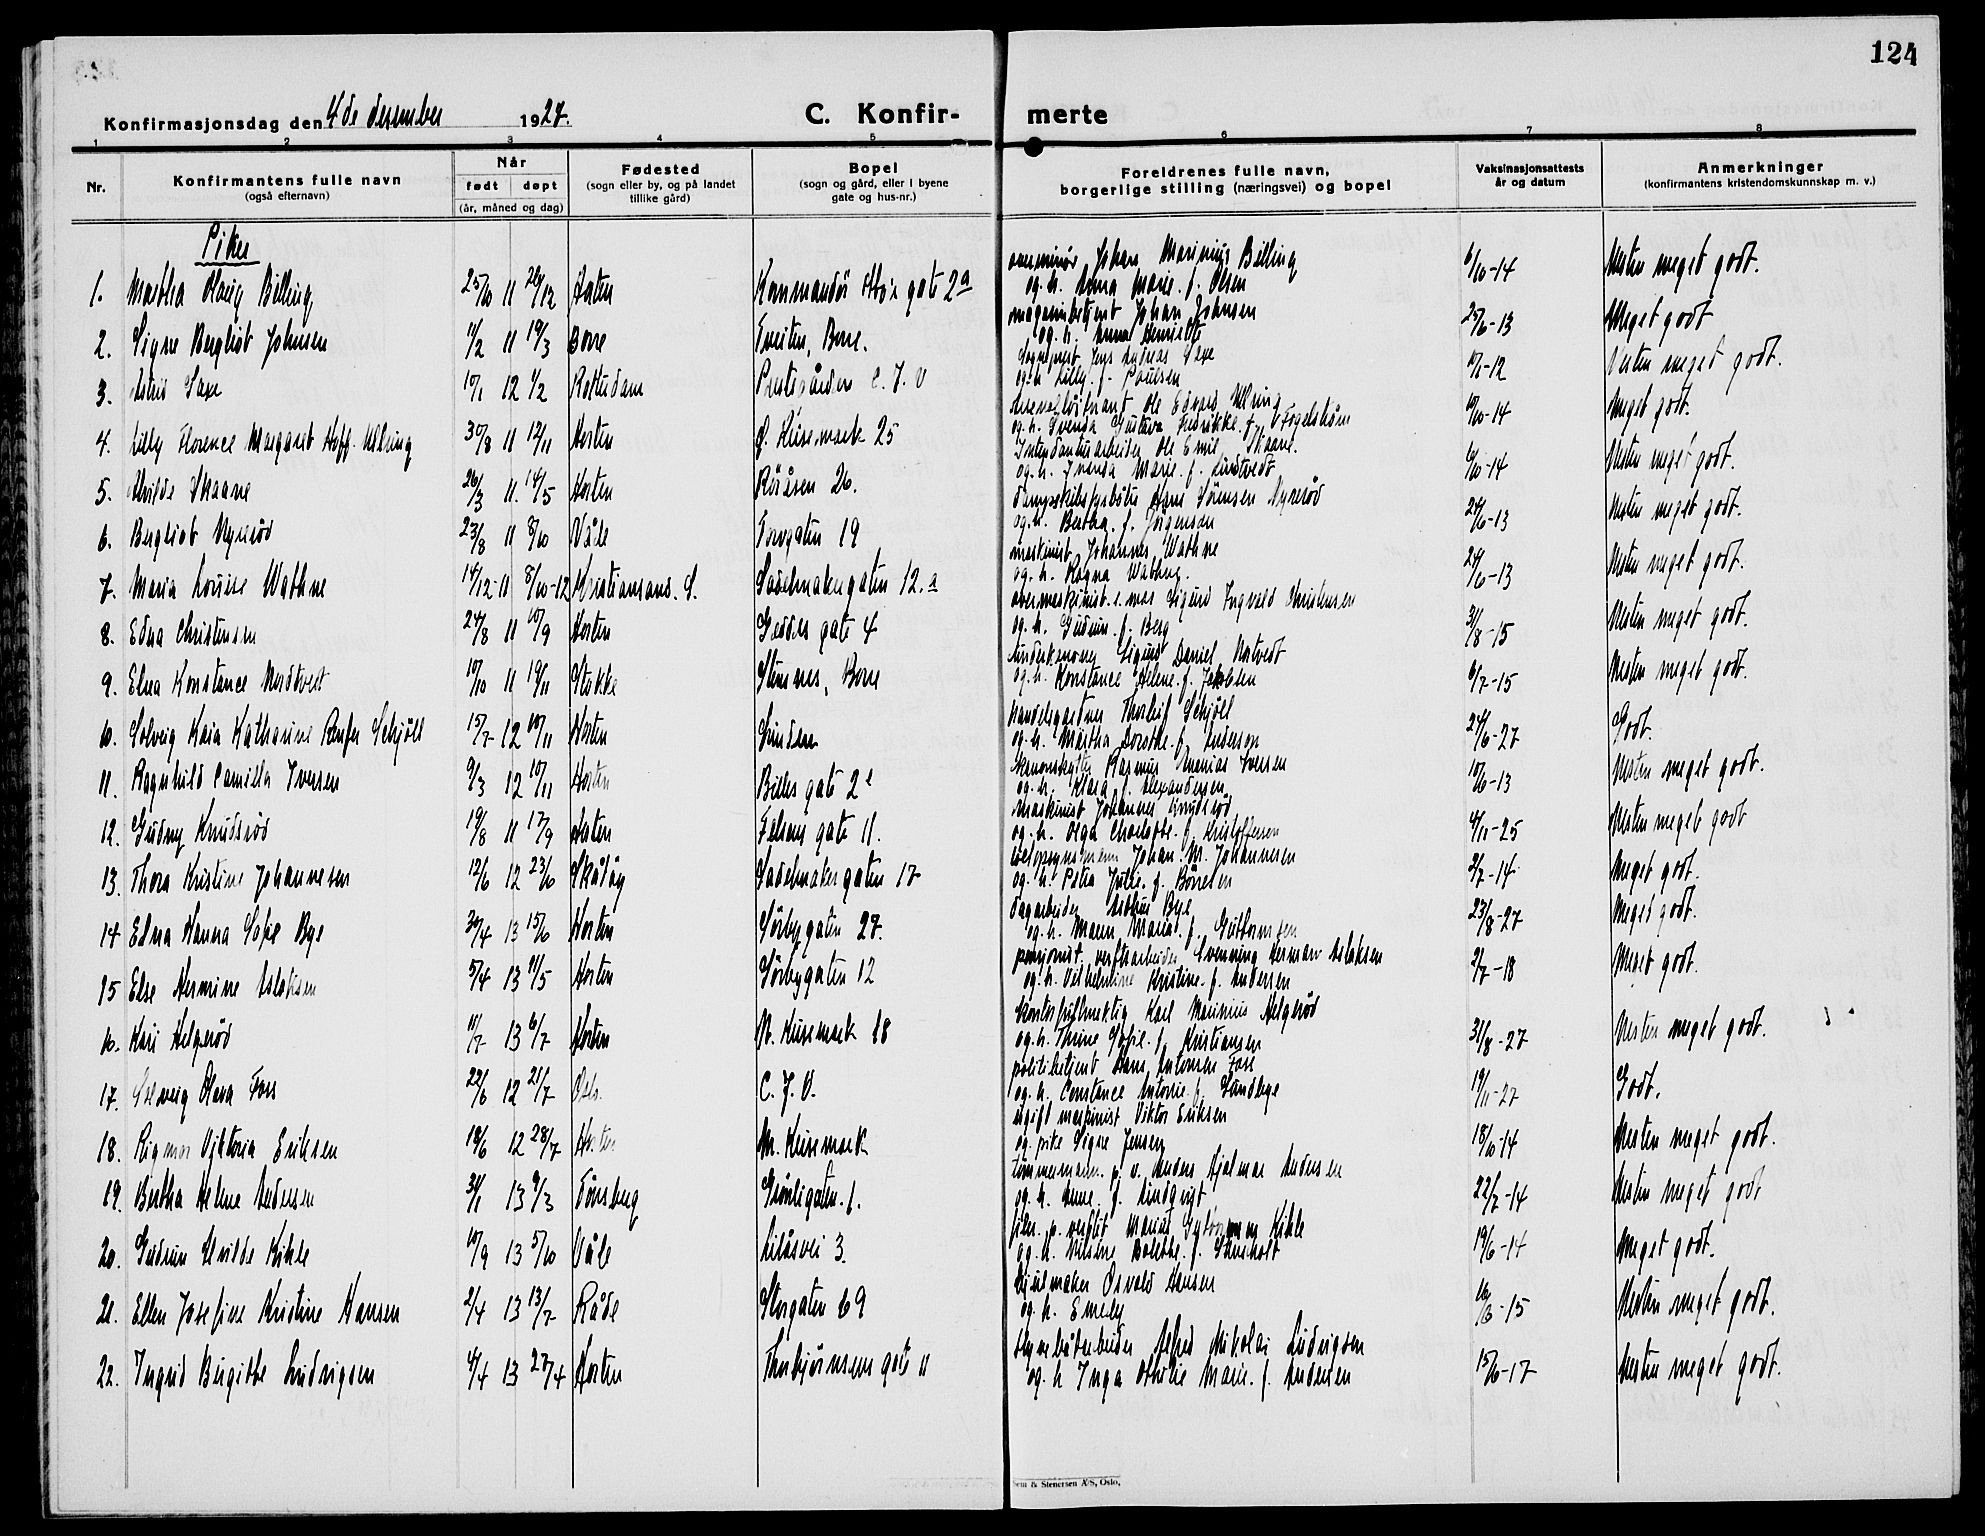 124
Konfirmasjonsdag den 4de desember 1927.
C. Konfir- merte
1 2 3 4 5 6 7 8
Nr.
Konfirmantens fulle navn
(også efternavn)
Når
født døpt
(år, måned og dag)
Fødested
(sogn eller by, og på landet
tillike gård)
Bopel
(sogn og gård, eller i byene
gate og hus-nr.)
Foreldrenes fulle navn,
borgerlige stilling (næringsvei) og bopel
Vaksinasjonsattests
år og datum
Anmerkninger
(konfirmantens kristendomskunnskap m. v.)
Piker
1. Martha Olaug Billing 25/10 11 26/12 Horten Kommandör Hoi's gate 2a Johan Marinius Billing og h. Anna Marie f. Olsen 6/10-14 Nesten meget godt.
2. Signe Bergliot Johnsen 11/2 11 19/3 Borre Tveiten, Borre. magasinbetjent Johan Johnsen og h. Anna Henriette 25/6-13 Meget godt
3. Astrid Saxe 10/1 12 1/2 Rotterdam Prestegården C. J. V Sogneprest Jens Andreas Saxe og h. Lilly f. Poulsen 10/1-12 Nesten meget godt.
4. Lilly Florence Margaret Hoff-Ulving 30/8 11 12/11 Horten Ø. Keisemark 25 Ole Edvard Ulving og h. Svenda Gustava Fredrikke f. Fogelström 10/10-14 Meget godt.
5. Alvilde Skaane 26/3 11 14/5 Horten Röråsen 26. Intendanturarbeider Ole Emil Skaane og h. Svenda Marie f. Lundtvedt 6/10-14 Nesten meget godt.
6. Bergliot Nyreröd 23/8 11 8/10 Våle Torvgaten 19 Hans Sörensen Nyreröd og h. Bertha f. Jörgensen 24/6-13 Nesten meget godt.
7. Maria Lovise Wathne 14/12-11 8/10-12 Kristiansand. S. Sadelmakergaten 12.a maskinist Johannes Wathne og h. Ragna Wathne. 24/6-13 Nesten meget godt.
8. Edna Christensen 24/8 11 10/9 Horten Geddes gate 4 overmaskinist i mar. Sigurd Ingvald Christensen og h. Gudrun f. Berg 31/8-15 Nesten meget godt.
9. Elna Konstance Nordtvedt 10/10 11 19/11 Stokke Steinsnes, Borre Underkanoner Sigurd Daniel Nortvedt og h. Konstance Helene f. Jakobsen 6/7-15 Nesten meget godt.
10. Solveig Kaia Katharine Schjöll 15/7 12 10/11 Horten Linden handelsgartner Thorleif Schjöll og h. Martha Dorothe f. Anderson 24/6-27 Godt.
11. Ragnhild Camilla Iversen 9/3 12 10/11 Horten Billes gate 2 Rasmus Ananias Iversen og h. Klara f. Alexandersen 10/6-13 Nesten meget godt.
12. Gudny Knudsröd 19/8 11 17/9 Horten Falsens gate 11. Maskinist Johannes Knudsröd og h. Olga Charlotte f. Kristoffersen 4/11-25 Nesten meget godt
13. Thora Kristine Johannesen 12/6 12 23/6 Skåtöy Sadelmakergaten 17 Johan M. Johannesen og h. Petra Julie f. Börresen 2/7-14 Meget godt.
14 Edna Hanna Sofie Bye 20/4 13 15/6 Horten Sörbygaten 27. dagarbeider Arthur Bye og h. Maren Maria f. Guttormsen 23/8-27 Meget godt.
15 Else Hermine Aslaksen 5/4 13 11/5 Horten Sörbygaten 12 pensjonist verftsarbeider Svenning Herman Aslaksen og h. Vilhelmine Kristine f. Andersen 2/7-18 Meget godt.
16. Kari Helgeröd 11/7 13 6/7 Horten N. Keisemark 18 Kontorfullmektig Karl Marinius Helgeröd og h. Thrine Sofie f. Kristiansen 31/8-27 Nesten meget godt.
17. Solveig Olava Foss 22/6 12 21/7 Oslo. C. J. V. politibetjent Hans Antonsen Foss og h. Constance Antonie f. Sandberg 19/11-27 Godt.
18. Rigmor Viktoria Eriksen 18/6 12 28/7 Horten N. Keisemark ugift maskinist Viktor Eriksen og pike Signe Jensen 18/10-14 Nesten meget godt.
19. Bertha Helene Andersen 31/1 13 9/3 Tönsberg Grönligaten 1. tömmermann p. v. Anders Hjalmar Andersen og h. Anne f. Lindqvist 22/7-14 Nesten meget godt
20. Gudrun Alvilde Kihle 10/9 13 5/10 Våle Liåsvei 3. Marius Kihle og h. Nilsine Bolette f. 19/6-14 Meget godt.
21. Ellen Josefine Kristine Hansen 2/4 13 13/7 Råde Storgaten 69 Hjulmaker Osvald Hansen og h. Emely -15 Nesten meget godt.
22. Ingrid Birgitte Ludvigsen 4/4 13 27/4 Horten Thorbjörnsens gate 11 Alfred Nikolai Ludvigsen og h Inga Othilie Marie f. Andersen 15/6-17 Nesten meget godt.
Sem & Stenersen A/S, Oslo.